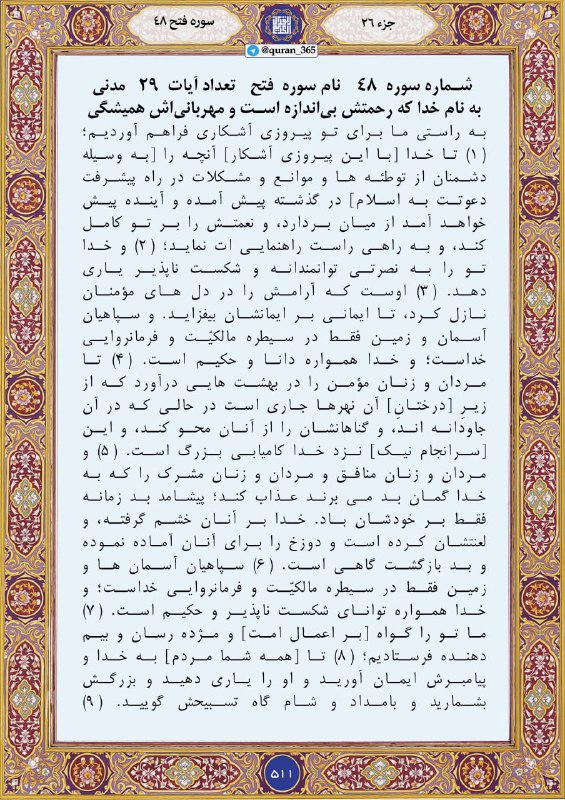 جزء ۲۶
سوره فتح ۴۸
@quran_365
شماره سوره ۴۸ نام سوره فتح تعداد آیات ۲۹ مدنی
به نام خدا که رحمتش بی‌اندازه است و مهربانی‌اش همیشگی
به راستی ما برای تو پیروزی آشکاری فراهم آوردیم؛
(۱) تا خدا [با این پیروزی آشکار] آنچه را [به وسیله
دشمنان از توطئه ها و موانع و مشکلات در راه پیشرفت
دعوتت به اسلام] در گذشته پیش آمده و آینده پیش
خواهد آمد از میان بردارد، و نعمتش را بر تو کامل
کند، و به راهی راست راهنمایی ات نماید؛ (۲) و خدا
تو را به نصرتی توانمندانه و شکست ناپذیر یاری
دهد. (۳) اوست که آرامش را در دل های مؤمنان
نازل کرد، تا ایمانی بر ایمانشان بیفزاید. و سپاهیان
آسمان و زمین فقط در سیطره مالکیّت و فرمانروایی
خداست؛ و خدا همواره دانا و حکیم است. (۴) تا
مردان و زنان مؤمن را در بهشت هایی درآورد که از
زیرِ [درختانِ] آن نهرها جاری است در حالی که در آن
جاودانه اند، و گناهانشان را از آنان محو کند، و این
[سرانجام نیک] نزد خدا کامیابی بزرگ است. (۵) و
مردان و زنان منافق و مردان و زنان مشرک را که به
خدا گمان بد می برند عذاب کند؛ پیشامد بد زمانه
فقط بر خودشان باد. خدا بر آنان خشم گرفته، و
لعنتشان کرده است و دوزخ را برای آنان آماده نموده
و بد بازگشت گاهی است. (۶) سپاهیان آسمان ها و
زمین فقط در سیطره مالکیّت و فرمانروایی خداست؛ و
خدا همواره توانای شکست ناپذیر و حکیم است. (۷)
ما تو را گواه [بر اعمال امت] و مژده رسان و بیم
دهنده فرستادیم؛ (۸) تا [همه شما مردم] به خدا و
پیامبرش ایمان آورید و او را یاری دهید و بزرگش
بشمارید و بامداد و شام گاه تسبیحش گویید. (۹)
۵۱۱